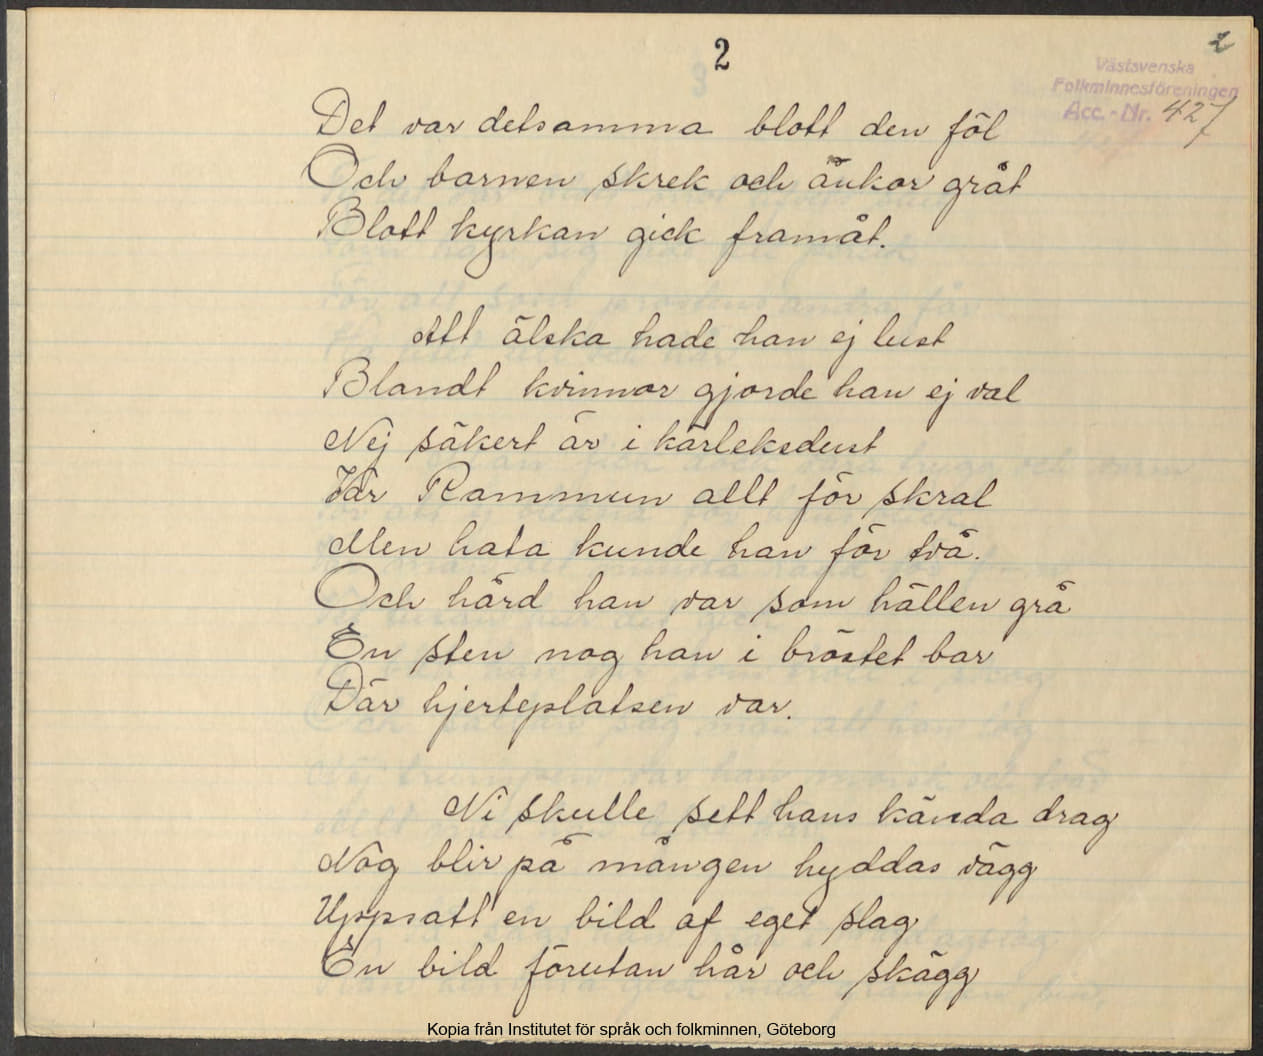 2
2
Västsvenska
Folkminnesföreningen
Acc.-Nr. 427
Det var detsamma blott den föl
Och barnen skrek och änkor gråt
Blott kyrkan gick framåt.
Att älska hade han ej lust
Blandt kvinnor gjorde han ej val
Nej säkert är i kärleksdust
Var Rammun allt för skral
Men hata kunde han för två.
Och hård han var som hällen grå
En sten nog han i bröstet bar
Där hjerteplatsen var.
Ni skulle sett hans kända drag
Nog blir på mången hyddas vägg
Uppsatt en bild af eget slag
En bild förutan hår och skägg
Kopia från Institutet för språk och folkminnen, Göteborg